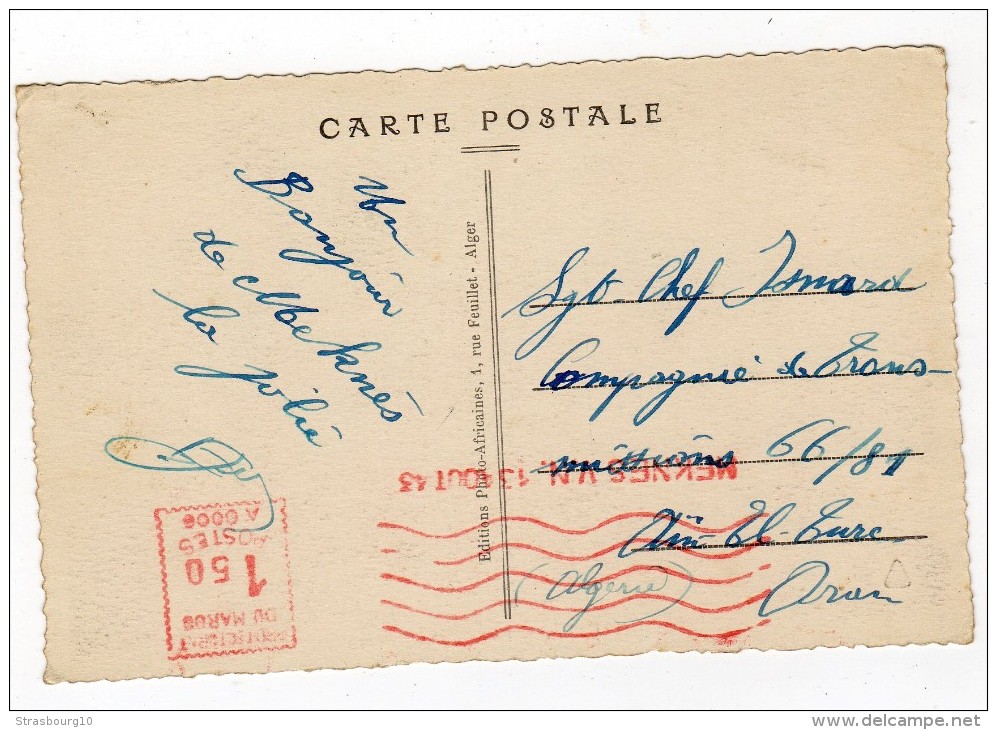 CARTE POSTALE
Un
Bonjour
de Meknès
la jolie
Editions Photo-Africaines, 1, rue Feuillet - Alger
Sgt-Chef Ismard
Compagnie de Trans-
missions 66/81
Aïn-El-Turc
Oran
(Algérie)
MEKNES V.N. 13 AOUT 43
PROTECTORAT
DU MAROC
150
POSTES
A 0006
Strasbourg10
www.delcampe.net